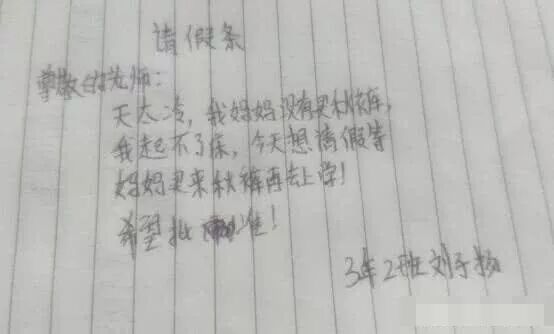 请假条
尊敬的老师：
天太冷，我妈妈没有买秋裤，
我起不了床，今天想请假等
妈妈买来秋裤再去上学！
希望批准！
3年2班刘子扬